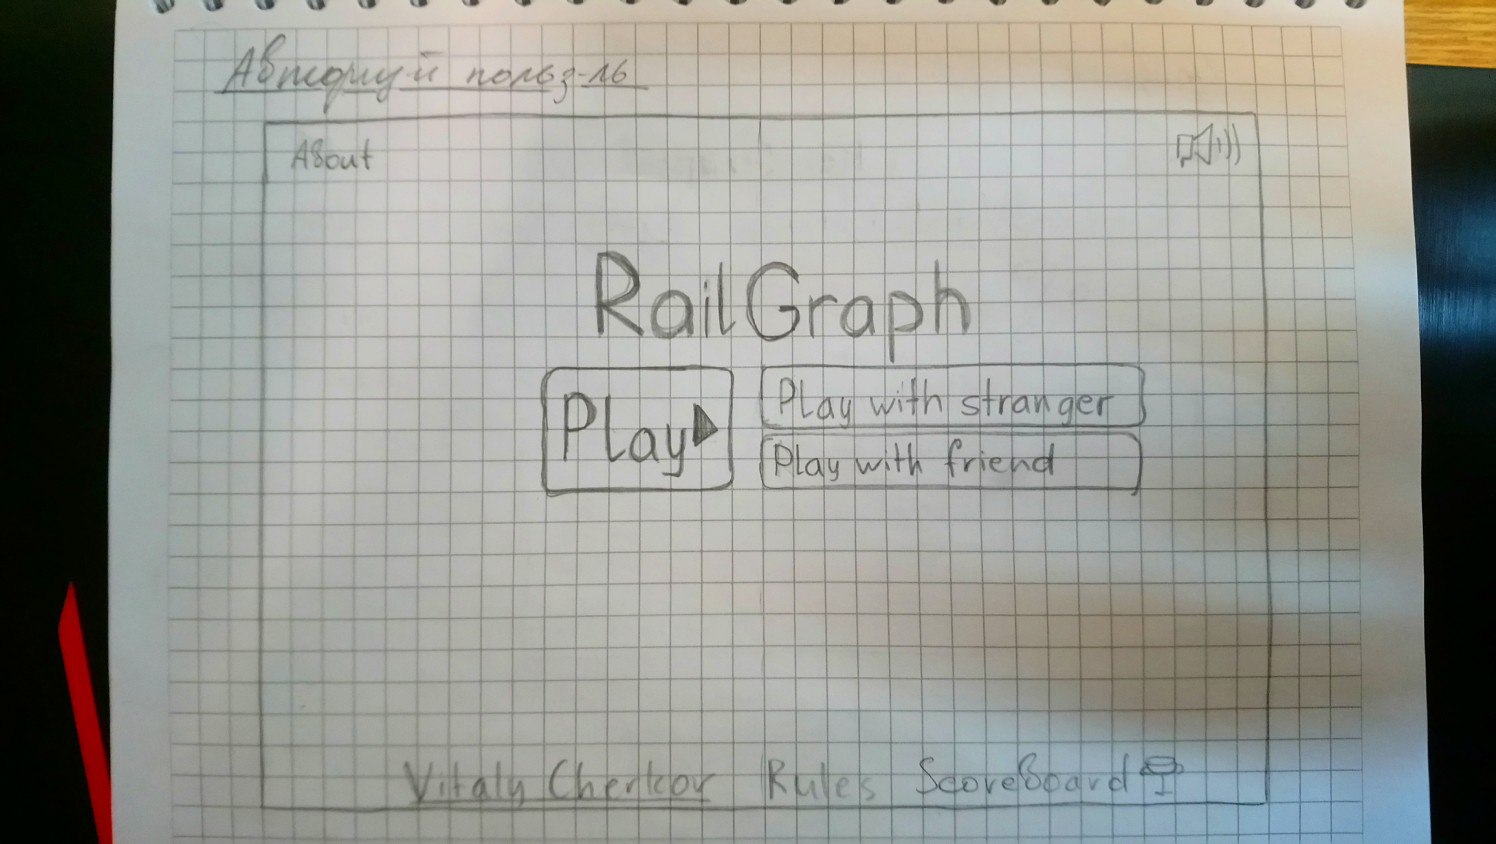 Авторизуй польз-ль
About
RailGraph
Play
Play with stranger
Play with friend
Vitaly Cherkov Rules ScoreBoard